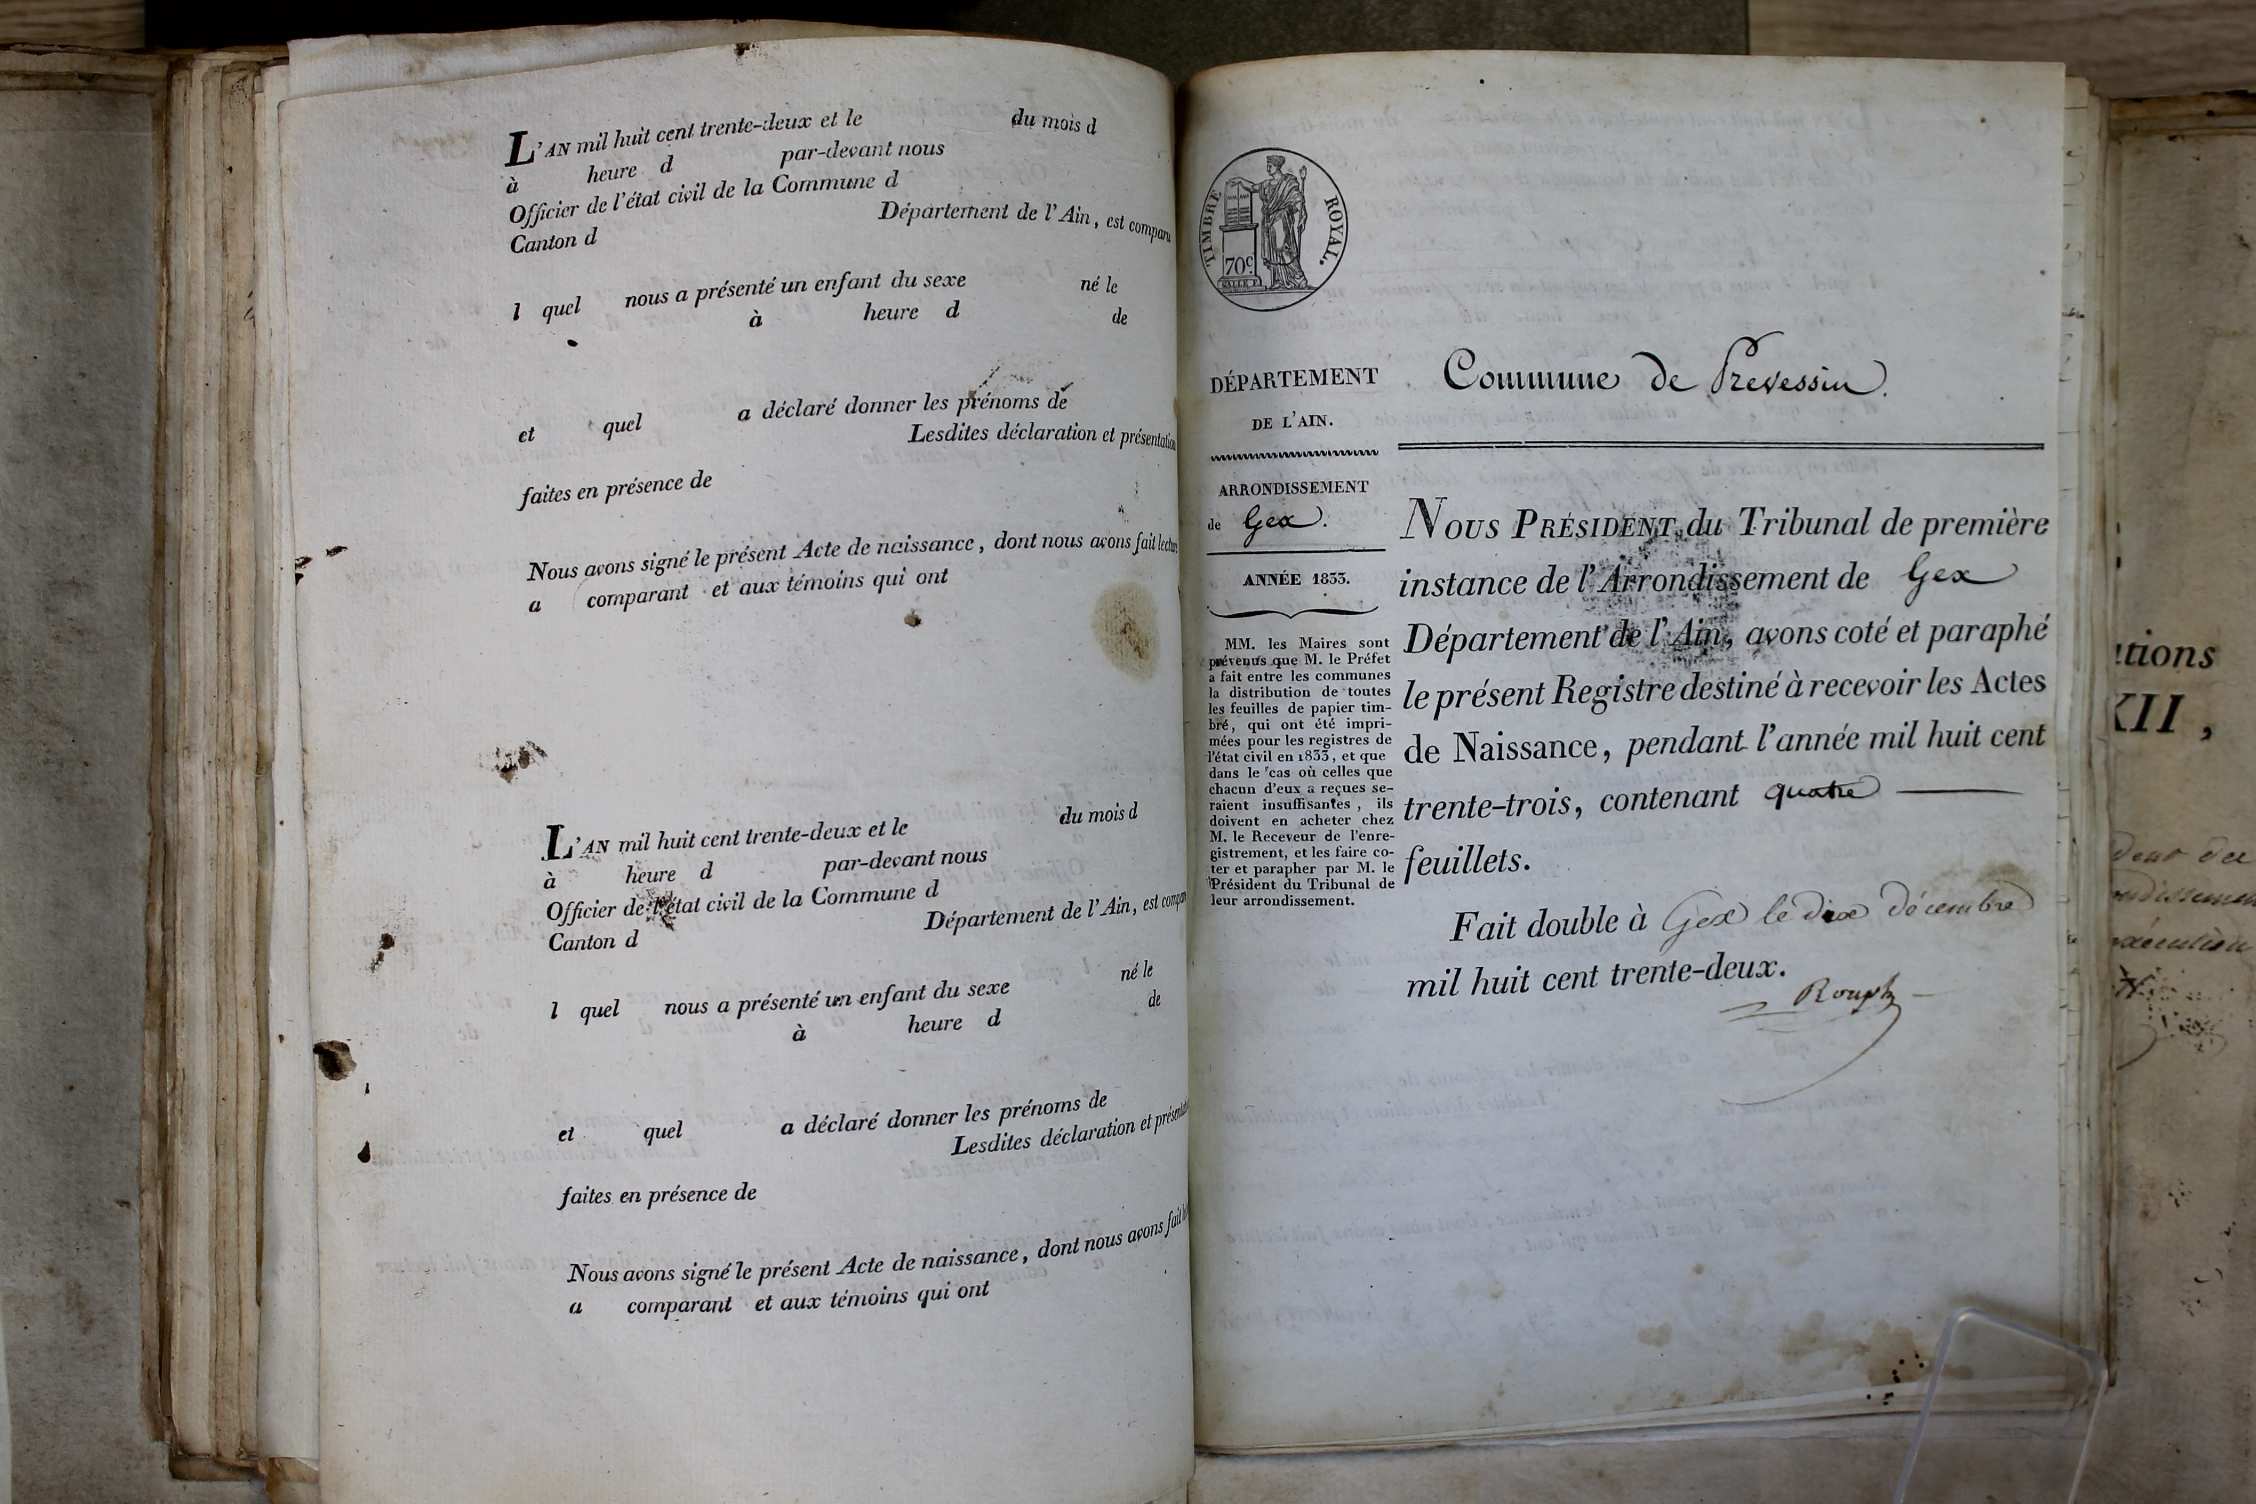 L'AN mil huit cent trente-deux et le du mois d
à heure d par-devant nous
Officier de l'état civil de la Commune d
Canton d Département de l'Ain, est comparu
l quel nous a présenté un enfant du sexe né le
à heure d de
et quel a déclaré donner les prénoms de
Lesdites déclaration et présentation
faites en présence de
Nous avons signé le présent Acte de naissance, dont nous avons fait lecture
a comparant et aux témoins qui ont
L'AN mil huit cent trente-deux et le du mois d
à heure d par-devant nous
Officier de l'état civil de la Commune d
Canton d Département de l'Ain, est compar
l quel nous a présenté un enfant du sexe né le
à heure d de
et quel a déclaré donner les prénoms de
Lesdites déclaration et présentat
faites en présence de
Nous avons signé le présent Acte de naissance, dont nous avons fait
a comparant et aux témoins qui ont
TIMBRE ROYAL.
70c.
DÉPARTEMENT
DE L'AIN.
ARRONDISSEMENT
de Gex.
ANNÉE 1833.
MM. les Maires sont
prévenus que M. le Préfet
a fait entre les communes
la distribution de toutes
les feuilles de papier tim-
bré, qui ont été impri-
mées pour les registres de
l'état civil en 1833, et que
dans le cas où celles que
chacun d'eux a reçues se-
raient insuffisantes, ils
doivent en acheter chez
M. le Receveur de l'enre-
gistrement, et les faire co-
ter et parapher par M. le
Président du Tribunal de
leur arrondissement.
Commune de Prevessin.
NOUS PRÉSIDENT du Tribunal de première
instance de l'Arrondissement de Gex
Département de l'Ain, avons coté et paraphé
le présent Registre destiné à recevoir les Actes
de Naissance, pendant l'année mil huit cent
trente-trois, contenant quatre
feuillets.
Fait double à Gex le dix décembre
mil huit cent trente-deux.
ations
XII,